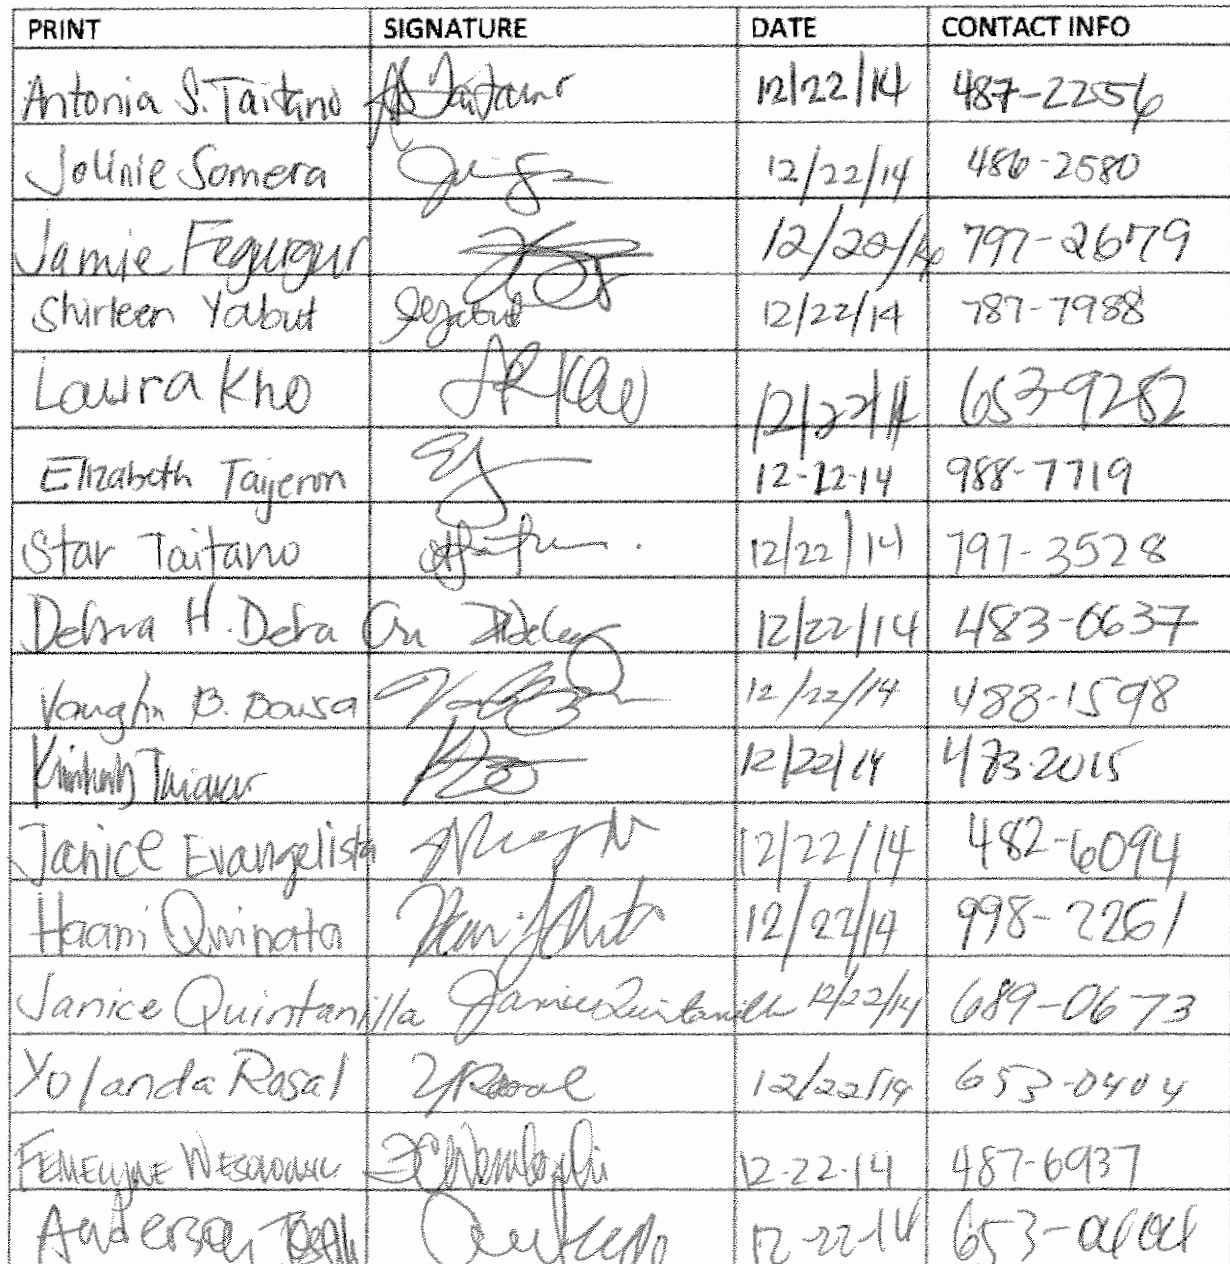 PRINT SIGNATURE DATE CONTACT INFO
Antonia S. Taitano 12/22/14 487-2256
Jolinie Somera 12/22/14 486-2580
Jamie Fegurgur 12/22/14 797-2679
Shirleen Yabut SYabut 12/22/14 787-7988
Laura Kho 12/22/14 653-9252
Elizabeth Taijeron 12-22-14 988-7719
Star Taitano 12/22/14 797-3528
Debra H. Dela Cru 12/22/14 483-0637
Vaughn B. Borja 12/22/14 483-1598
12/22/14 473-2015
Janice Evangelista 12/22/14 482-6094
Haani Quinata 12/22/14 998-2261
Janice Quintanilla Janice Quintanilla 12/22/14 689-0673
Yolanda Rosal YRosal 12/22/14 653-0404
FEMELYNE 12-22-14 487-6937
Anderson 12-22-14 653-0404